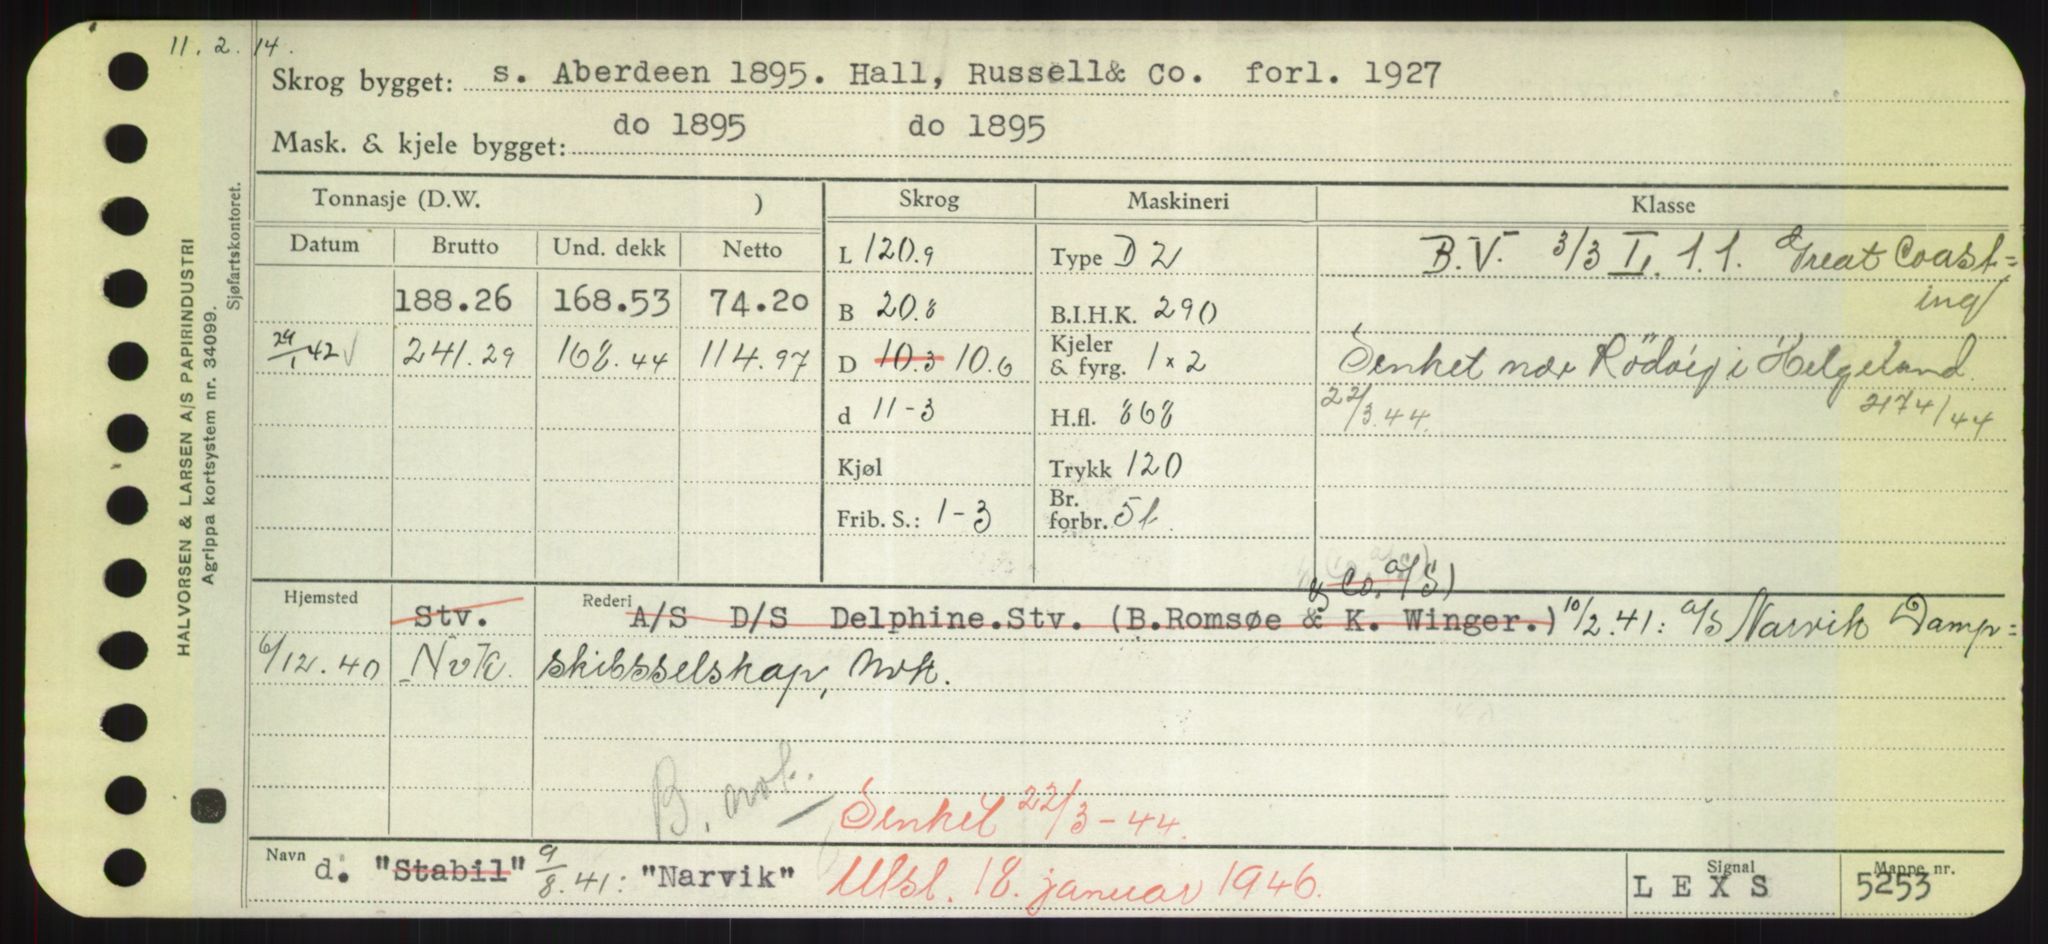 11. 2. 14.
Skrog bygget: s. Aberdeen 1895. Hall, Russell& Co. forl. 1927
Mask. & kjele bygget: do 1895 do 1895
Tonnasje (D.W. ) Skrog Maskineri Klasse
Datum Brutto Und. dekk Netto L 120.9 Type D 2 B.V. 3/3 I. 1.1. Great Coast=
ing
188.26 168.53 74.20 B 20.8 B.I.H.K. 290
29/1 42 241.29 168.44 114.97 D 10.3 10.6 Kjeler & fyrg. 1 x 2 Senket nær Rödvig i Helgeland.
d 11-3 H.fl. 868 22/3.44. 2174/44
Kjøl Trykk 120
Frib. S.: 1-3 Br. forbr. 5 t.
& Co. a/S)
Hjemsted Stv. Rederi A/S D/S Delphine.Stv. (B.Romsøe & K. Winger.) 10/2.41: a/S Narvik Damp=
6/12.40 Nvk. skibsselskap, Nvk.
B.
Senket 22/3-44.
Navn d. "Stabil" 9/8.41: "Narvik" Utsl. 18. januar 1946. Signal LEXS Mappe nr. 5253
HALVORSEN & LARSEN A/S PAPIRINDUSTRI
Agrippa kortsystem nr. 34099.
Sjøfartskontoret.